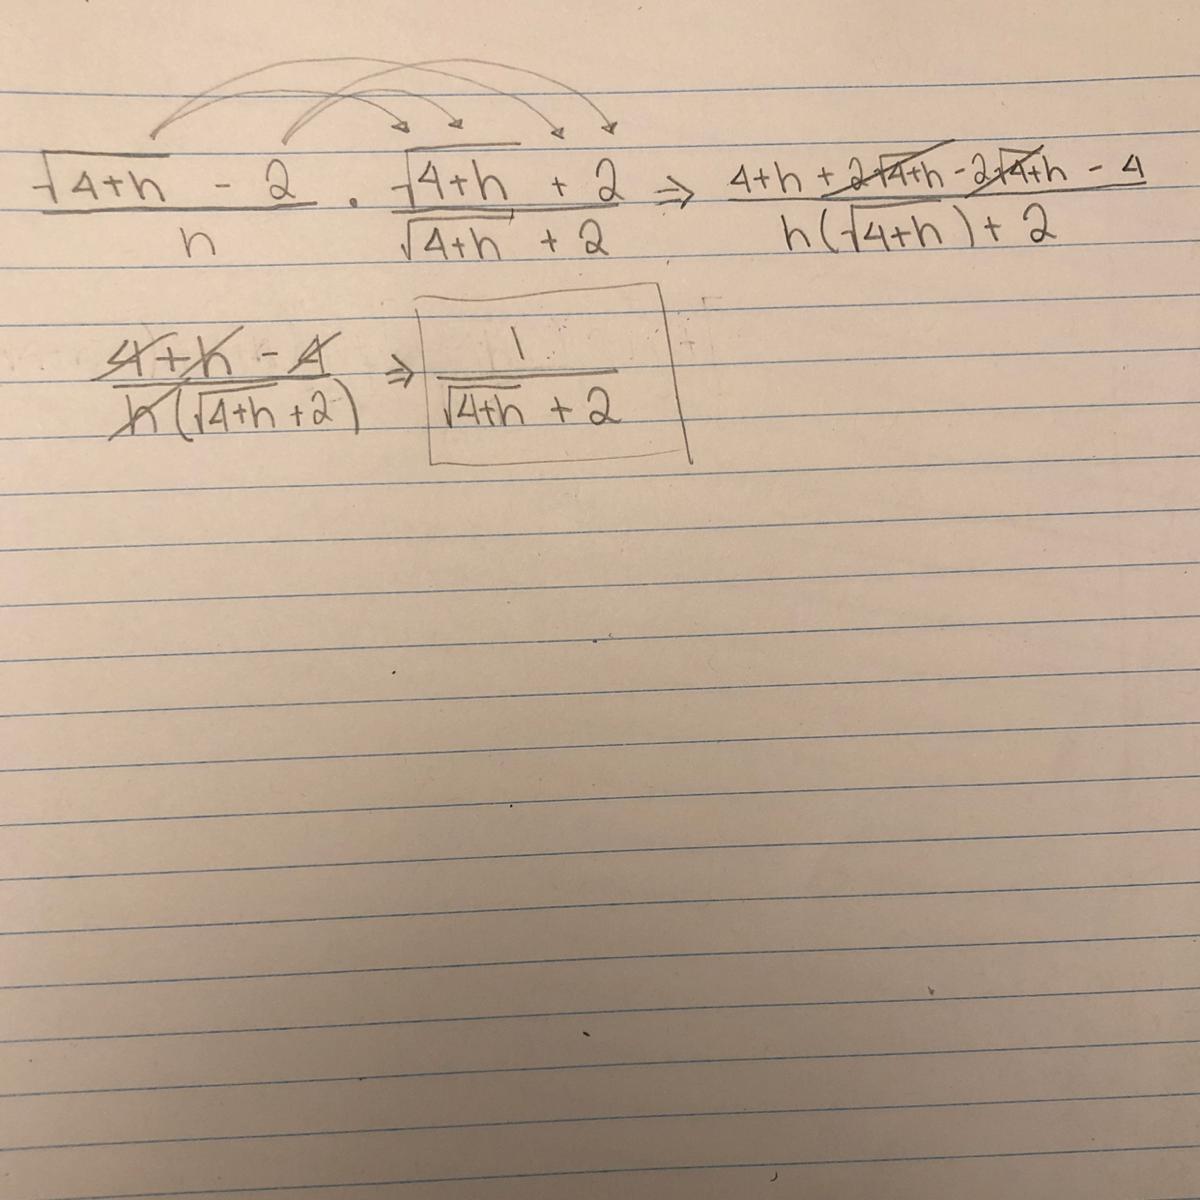 (√(4+h) - 2)/h · (√(4+h) + 2)/(√(4+h) + 2) ⇒ (4+h + 2√(4+h) - 2√(4+h) - 4)/(h(√(4+h)) + 2)
(4+h - 4)/(h(√(4+h) + 2)) ⇒ 1/(√(4+h) + 2)